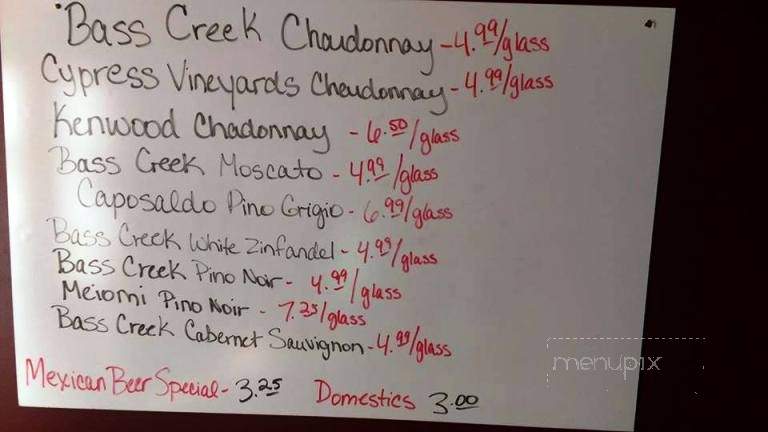 Bass Creek Chaudonnay - 4.99/glass
Cypress Vineyards Chaudonnay - 4.99/glass
Kenwood Chadonnay - 6.50/glass
Bass Creek Moscato - 4.99/glass
Caposaldo Pino Grigio - 6.99/glass
Bass Creek White Zinfandel - 4.99/glass
Bass Creek Pino Noir - 4.99/glass
Meiomi Pino Noir - 7.25/glass
Bass Creek Cabernet Sauvignon - 4.99/glass
Mexican Beer Special - 3.25 Domestics 3.00
menupix